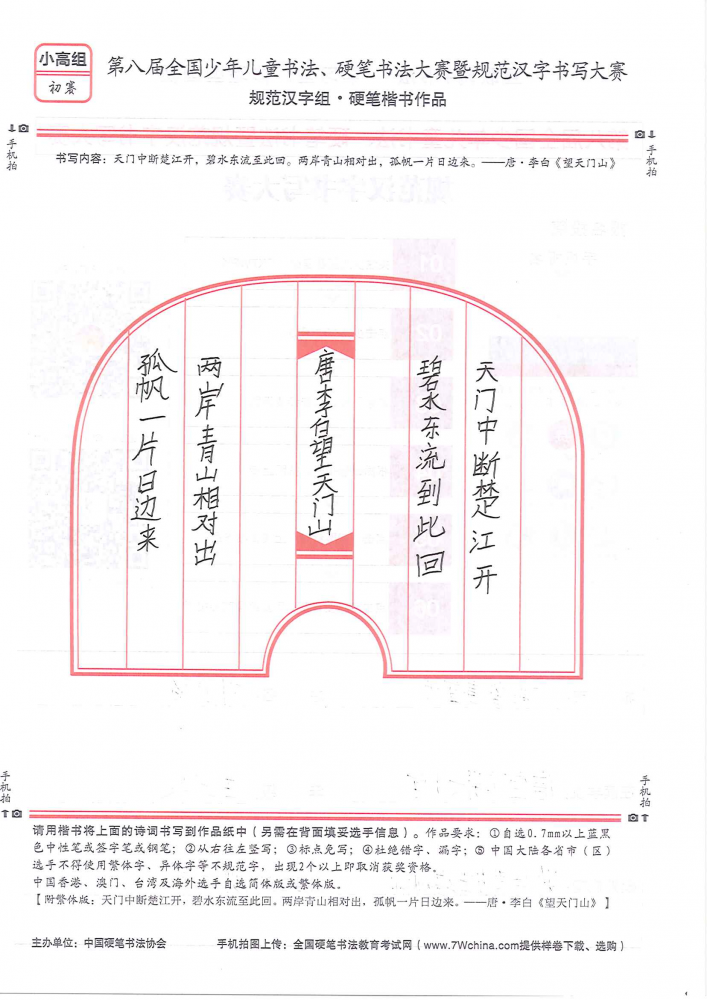 小高组
初赛
第八届全国少年儿童书法、硬笔书法大赛暨规范汉字书写大赛
规范汉字组·硬笔楷书作品
手机拍
手机拍
书写内容：天门中断楚江开，碧水东流至此回。两岸青山相对出，孤帆一片日边来。——唐·李白《望天门山》
天门中断楚江开
碧水东流到此回
唐李白望天门山
两岸青山相对出
孤帆一片日边来
手机拍
手机拍
请用楷书将上面的诗词书写到作品纸中（另需在背面填妥选手信息）。作品要求：①自选0.7mm以上蓝黑
色中性笔或签字笔或钢笔；②从右往左竖写；③标点免写；④杜绝错字、漏字；⑤中国大陆各省市（区）
选手不得使用繁体字、异体字等不规范字，出现2个以上即取消获奖资格。
中国香港、澳门、台湾及海外选手自选简体版或繁体版。
【附繁体版：天门中断楚江开，碧水东流至此回。两岸青山相对出，孤帆一片日边来。——唐·李白《望天门山》】
主办单位：中国硬笔书法协会 手机拍图上传：全国硬笔书法教育考试网（www.7Wchina.com提供样卷下载、选购）